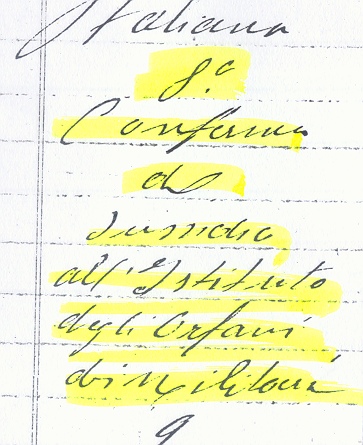 Italiana
8.a
Conferma
di
sussidio
all'Istituto
degli Orfani
di Militari
9